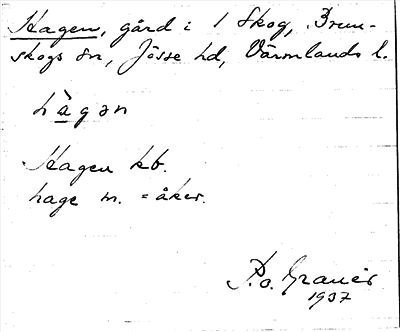 Hagen, gård i 1 Skog, Brun-
skogs sn, Jösse hd, Värmlands l.
hàgən
Hagen kb.
hage m. = åker.
P.o. Graner
1937